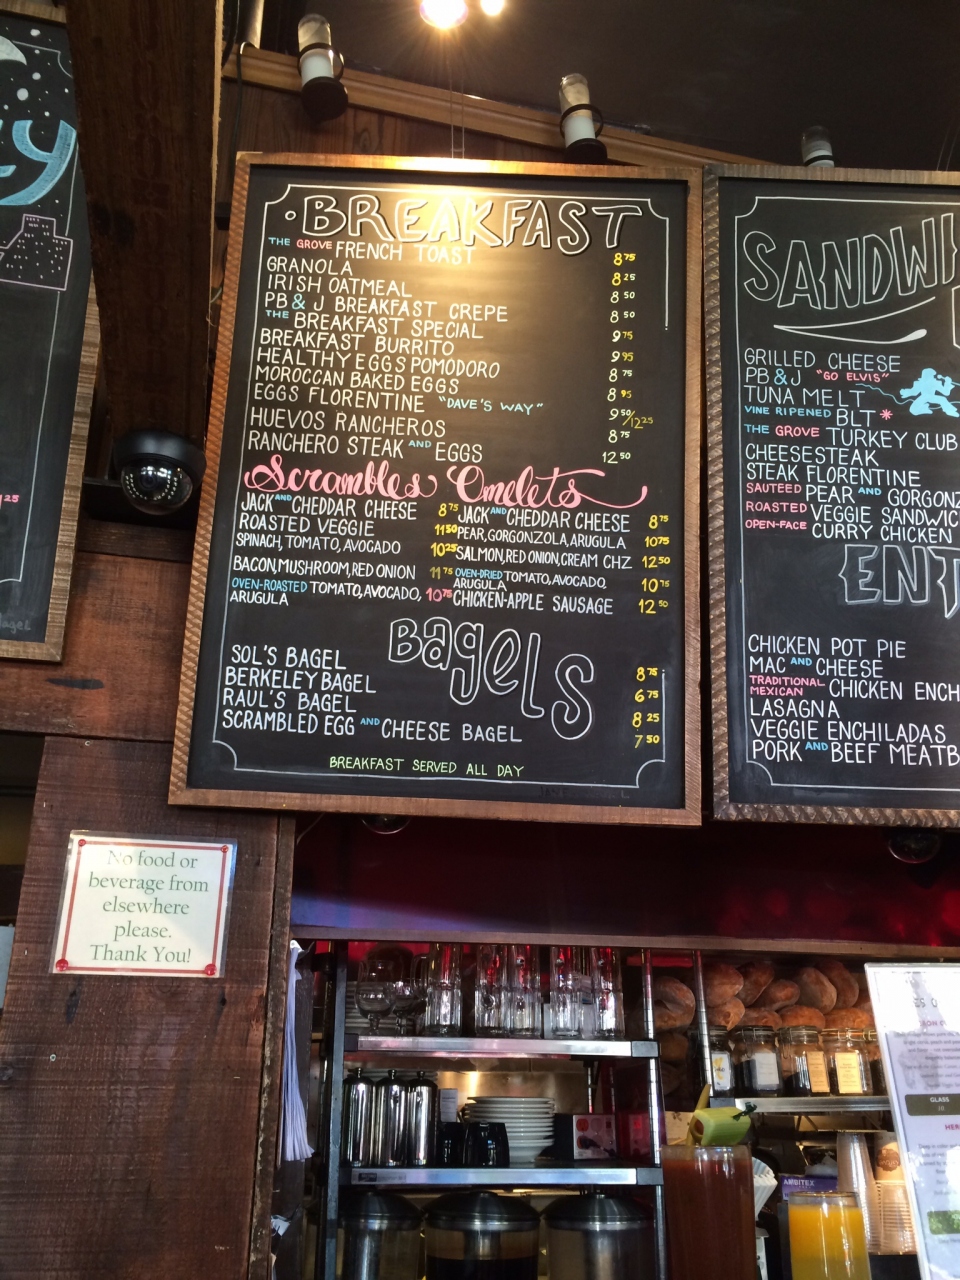 BREAKFAST
THE GROVE FRENCH TOAST 8 75
GRANOLA 8 25
IRISH OATMEAL 8 50
PB & J BREAKFAST CREPE 8 50
THE BREAKFAST SPECIAL 9 75
BREAKFAST BURRITO 9 95
HEALTHY EGGS POMODORO 8 75
MOROCCAN BAKED EGGS 8 95
EGGS FLORENTINE "DAVE'S WAY" 9 50/12 25
HUEVOS RANCHEROS 8 75
RANCHERO STEAK AND EGGS 12 50
Scrambles Omelets
JACK AND CHEDDAR CHEESE 8 75
ROASTED VEGGIE 11 50
SPINACH, TOMATO, AVOCADO 10 25
BACON, MUSHROOM, RED ONION 11 75
OVEN-ROASTED TOMATO, AVOCADO, 10 75
ARUGULA
JACK AND CHEDDAR CHEESE 8 75
PEAR, GORGONZOLA, ARUGULA 10 75
SALMON, RED ONION, CREAM CHZ 12 50
OVEN-DRIED TOMATO, AVOCADO, 10 75
ARUGULA
CHICKEN-APPLE SAUSAGE 12 50
BAGELS
SOL'S BAGEL 8 75
BERKELEY BAGEL 6 75
RAUL'S BAGEL 8 25
SCRAMBLED EGG AND CHEESE BAGEL 7 50
BREAKFAST SERVED ALL DAY
SANDWI
GRILLED CHEESE
PB & J "GO ELVIS"
TUNA MELT
VINE RIPENED BLT *
THE GROVE TURKEY CLUB
CHEESESTEAK
STEAK FLORENTINE
SAUTEED PEAR AND GORGONZ
ROASTED VEGGIE SANDWIC
OPEN-FACE CURRY CHICKEN
ENT
CHICKEN POT PIE
MAC AND CHEESE
TRADITIONAL MEXICAN CHICKEN ENCH
LASAGNA
VEGGIE ENCHILADAS
PORK AND BEEF MEATB
No food or
beverage from
elsewhere
please.
Thank You!
AMBITEX
GLASS